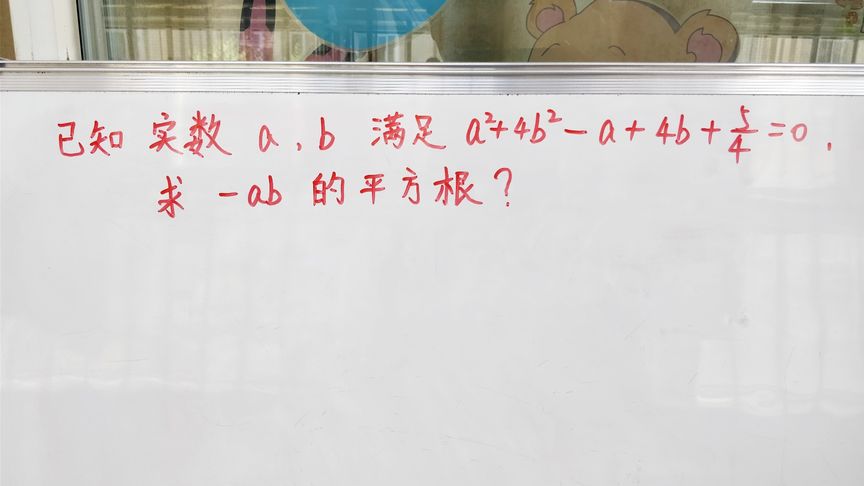 已知 实数 a,b 满足 a²+4b²-a+4b+5/4=0,
求 -ab 的平方根?